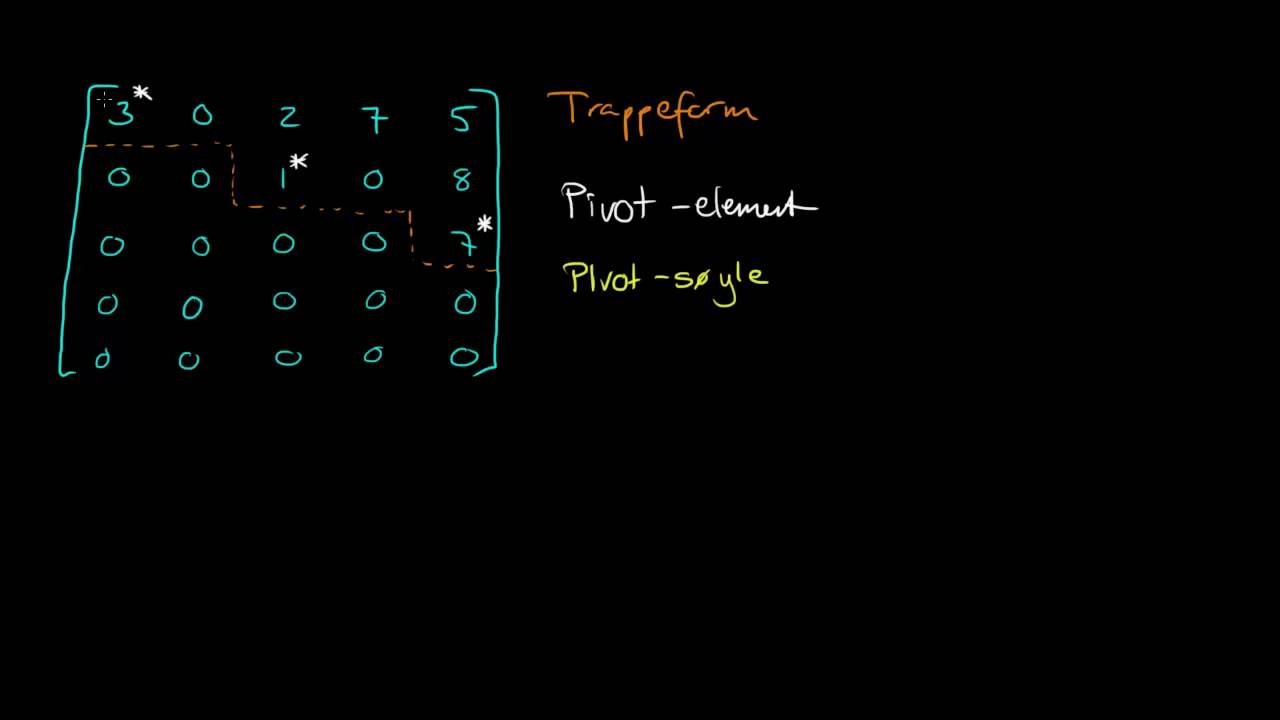 3* 0 2 7 5
Trappeform
0 0 1* 0 8
Pivot-element
0 0 0 0 7*
PIvot-søyle
0 0 0 0 0
0 0 0 0 0